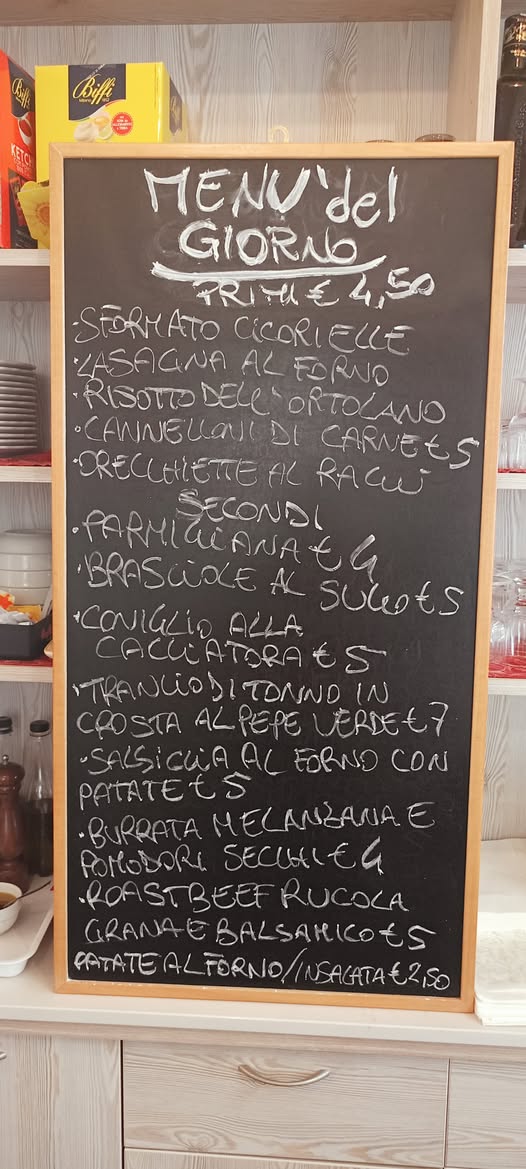 Biffi
Biffi
KETCH
MENU' del
GIORNO
PRIMI € 4,50
·SFORMATO CICORIELLE
·LASAGNA AL FORNO
·RISOTTO DELL'ORTOLANO
·CANNELLONI DI CARNE €5
·ORECCHIETTE AL RAGÙ
SECONDI
·PARMIGIANA € 4
·BRASCIOLE AL SUGO €5
·CONIGLIO ALLA
CACCIATORA € 5
·TRANCIO DI TONNO IN
CROSTA AL PEPE VERDE €7
·SALSICCIA AL FORNO CON
PATATE € 5
·BURRATA MELANZANA E
POMODORI SECCHI € 4
·ROASTBEEF RUCOLA
GRANA E BALSAMICO €5
PATATE AL FORNO/INSALATA €2,50